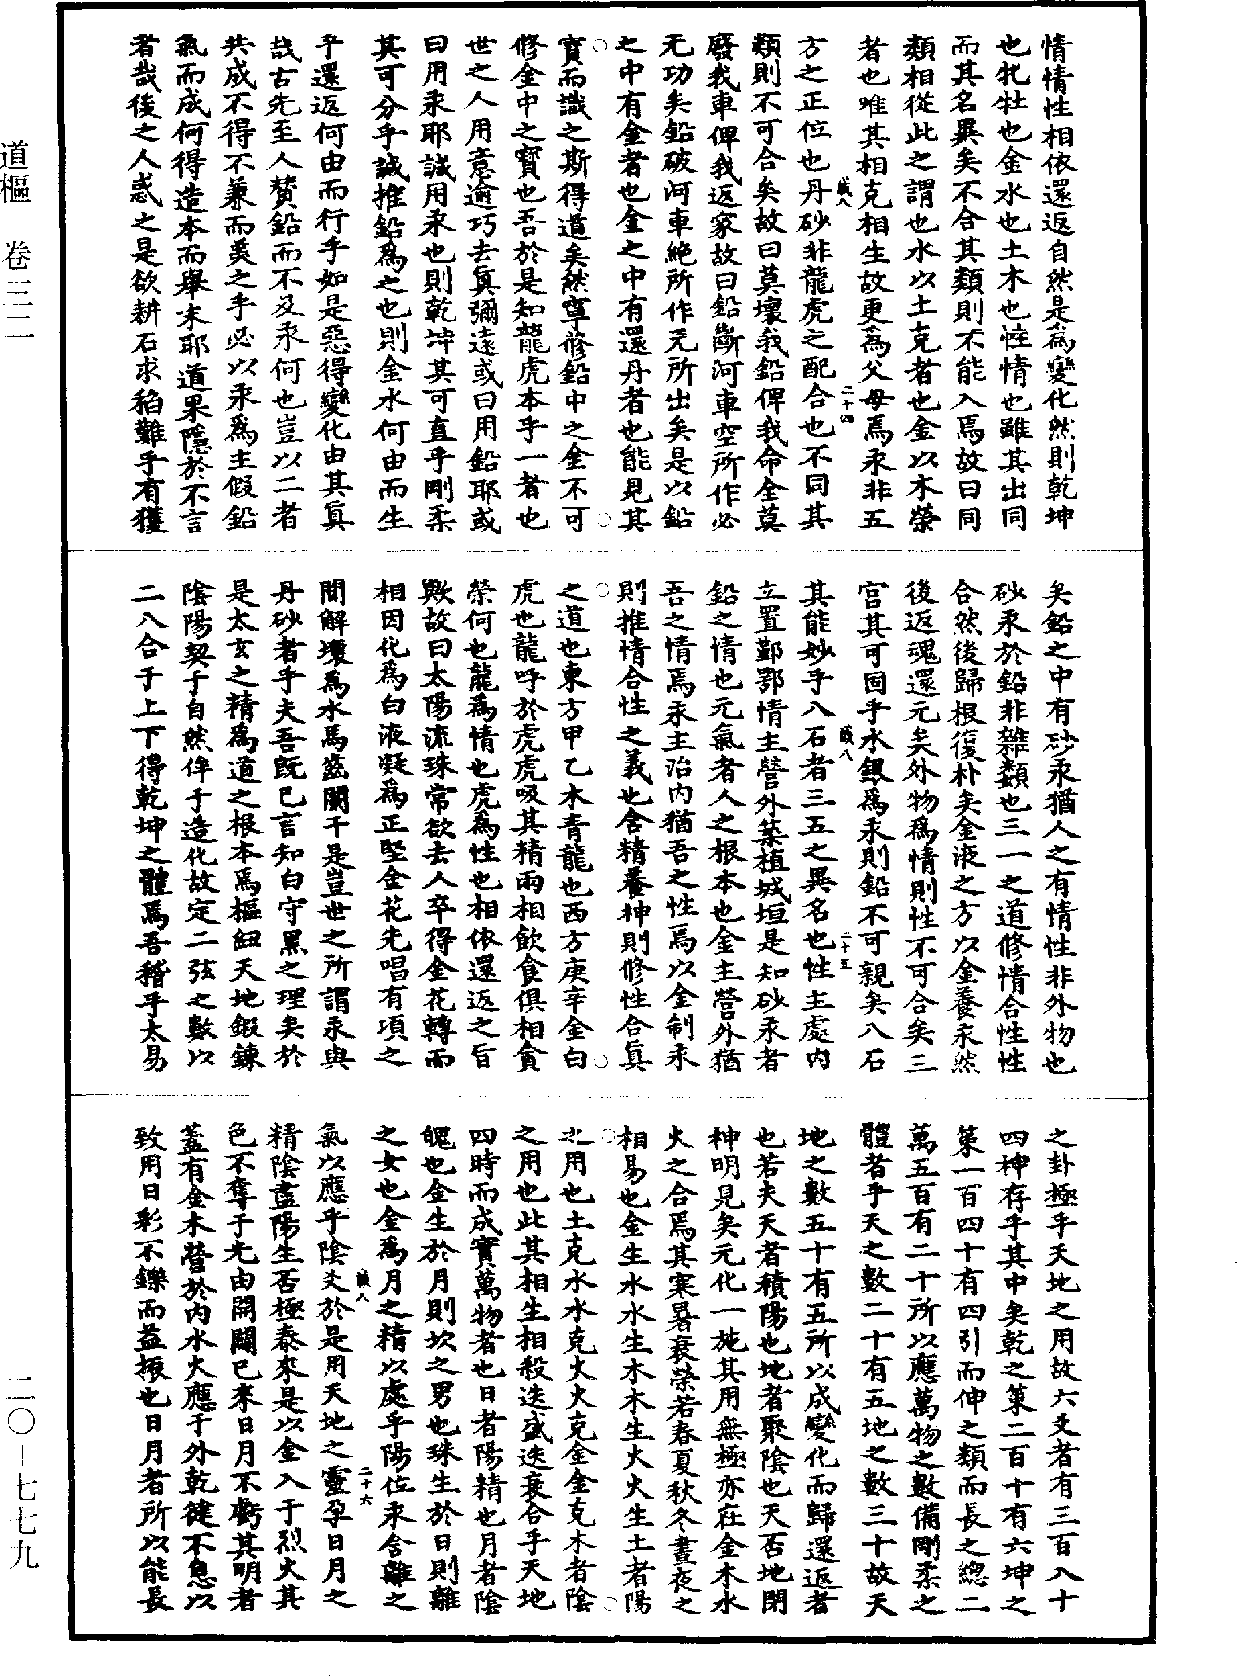 道樞　卷三二
二〇－七七九
情情性相依還返自然是爲變化然則乾坤
也牝牡也金水也土木也性情也雖其出同
而其名異矣不合其類則不能入焉故曰同
類相從此之謂也水以土克者也金以木榮
者也唯其相克相生故更爲父母焉汞非五
誠八　二十四
方之正位也丹砂非龍虎之配合也不同其
類則不可合矣故曰莫壞我鉛俾我命全莫
廢我車俾我返家故曰鉛斷河車空所作必
无功矣鉛破河車絶所作无所出矣是以鉛
之中有金者也金之中有還丹者也能見其
寶而識之斯得道矣然寧修鉛中之金不可
修金中之寶也吾於是知龍虎本乎一者也
世之人用意逾巧去眞彌遠或曰用鉛耶或
曰用汞耶誠用汞也則乾坤其可直乎剛柔
其可分乎誠推鉛爲之也則金水何由而生
乎還返何由而行乎如是惡得變化由其眞
哉古先至人贊鉛而不及汞何也豈以二者
共成不得不兼而羙之乎必以汞爲主假鉛
氣而成何得造本而舉末耶道果隱於不言
者哉後之人惑之是欲耕石求稻難乎有獲
矣鉛之中有砂汞猶人之有情性非外物也
砂汞於鉛非雜類也三一之道修情合性性
合然後歸根復朴矣金液之方以金養汞然
後返魂還元矣外物爲情則性不可合矣三
宫其可固乎水銀爲汞則鉛不可親矣八石
誠八　二十五
其能妙乎八石者三五之異名也性主處内
立置鄞鄂情主營外築植城垣是知砂汞者
鉛之情也元氣者人之根本也金主營外猶
吾之情焉汞主治内猶吾之性焉以金制汞
則推情合性之義也含精養神則修性合眞
之道也東方甲乙木青龍也西方庚辛金白
虎也龍呼於虎虎吸其精兩相飲食俱相貪
榮何也龍爲情也虎爲性也相依還返之旨
歟故曰太陽流珠常欲去人卒得金花轉而
相因化爲白液凝爲正堅金花先唱有項之
間解壞爲水馬齒闌干是豈世之所謂汞與
丹砂者乎夫吾旣已言知白守黑之理矣於
是太玄之精爲道之根本焉樞紐天地鍛鍊
陰陽契于自然侔于造化故定二弦之數以
二八合于上下得乾坤之體焉吾稽乎太易
之卦極乎天地之用故六爻者有三百八十
四神存乎其中矣乾之策二百十有六坤之
策一百四十有四引而伸之類而長之總二
萬五百有二十所以應萬物之數備剛柔之
體者乎天之數二十有五地之數三十故天
地之數五十有五所以成變化而歸還返者
也若夫天者積陽也地者聚陰也天否地閉
神明見矣元化一施其用無極亦在金木水
火之合焉其寒暑衰榮若春夏秋冬晝夜之
相易也金生水水生木木生火火生土者陽
之用也土克水水克火火克金金克木者陰
之用也此其相生相殺迭盛迭衰合乎天地
四時而成實萬物者也日者陽精也月者陰
魄也金生於月則坎之男也珠生於日則離
之女也金爲月之精以處乎陽位汞含離之
誠八　二十六
氣以應乎陰爻於是用天地之靈孕日月之
精陰盡陽生否極泰來是以金入于烈火其
色不奪于光由開闢已來日月不虧其明者
蓋有金木營於内水火應于外乾健不息以
致用日彩不鑠而益振也日月者所以能長